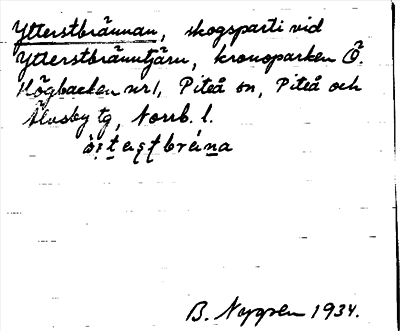 Ytterstbrännan, skogsparti vid
Ytterstbränntjärn, kronoparken Ö.
Högbacken nr 1, Piteå sn, Piteå och
Älvsby tg, Norrb. l.
B. Noppen 1934.